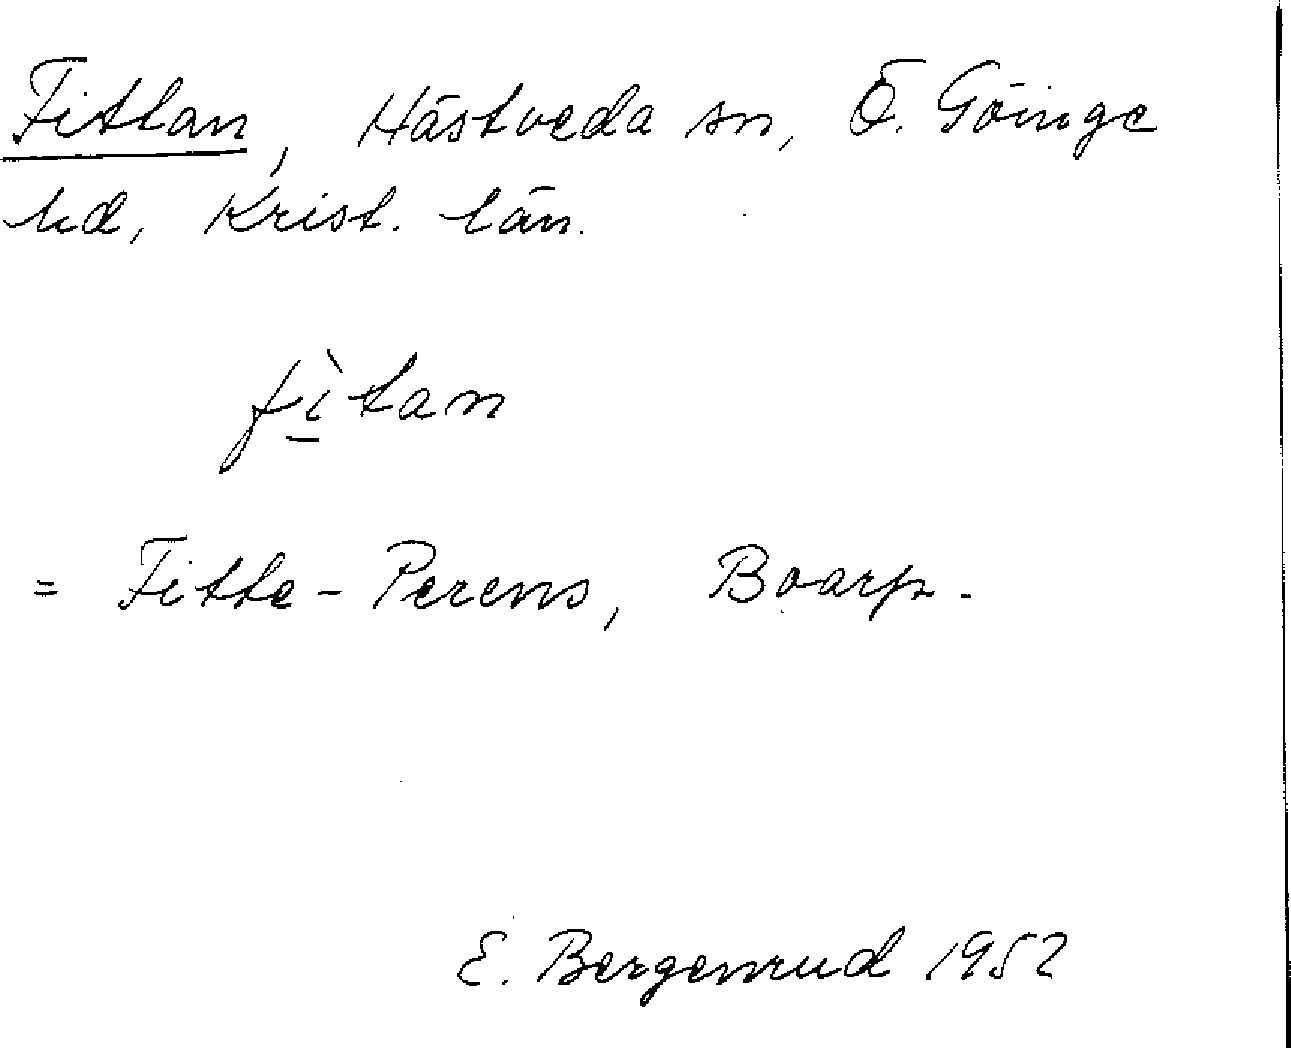 Fittan, Hästveda sn, Ö. Göinge
hd, Krist. län.
fì̱tan
= Fitte-Perens, Boarp.
E. Bergenrud 1952